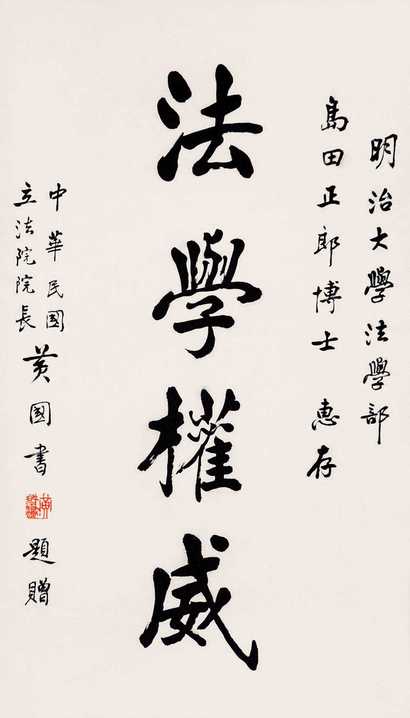 明治大學法學部
島田正郎博士 惠存
法學權威
中華民國
立法院院長
黃國書 題贈